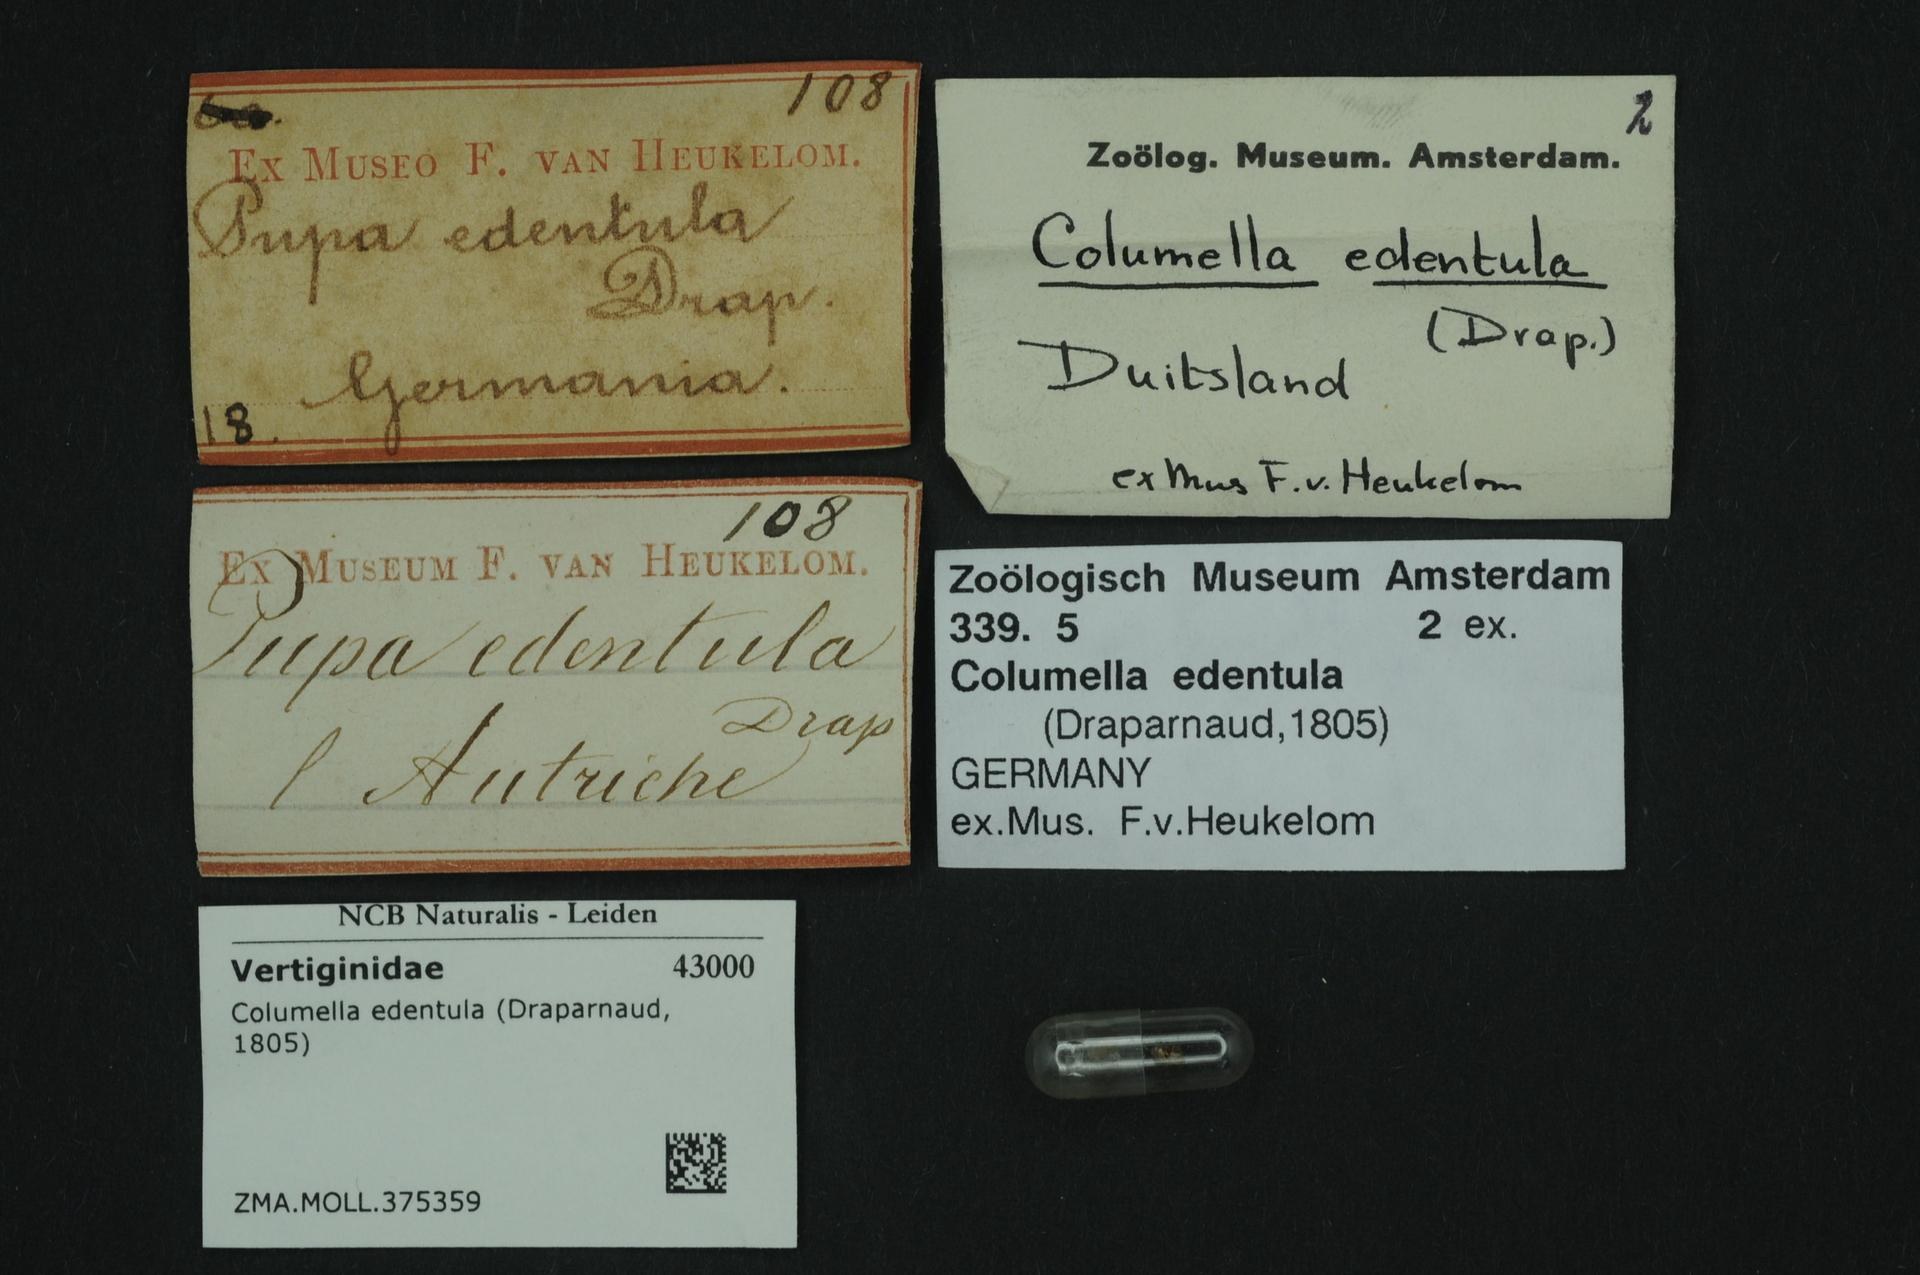 108
EX MUSEO F. VAN HEUKELOM.
Pupa edentula
Drap.
Germania.
18.
108
EX MUSEUM F. VAN HEUKELOM.
Pupa edentula
Drap
l Autriche
NCB Naturalis - Leiden
Vertiginidae 43000
Columella edentula (Draparnaud,
1805)
ZMA.MOLL.375359
2
Zoölog. Museum. Amsterdam.
Columella edentula
(Drap.)
Duitsland
ex Mus F.v. Heukelom
Zoölogisch Museum Amsterdam
339. 5 2 ex.
Columella edentula
(Draparnaud,1805)
GERMANY
ex.Mus. F.v.Heukelom